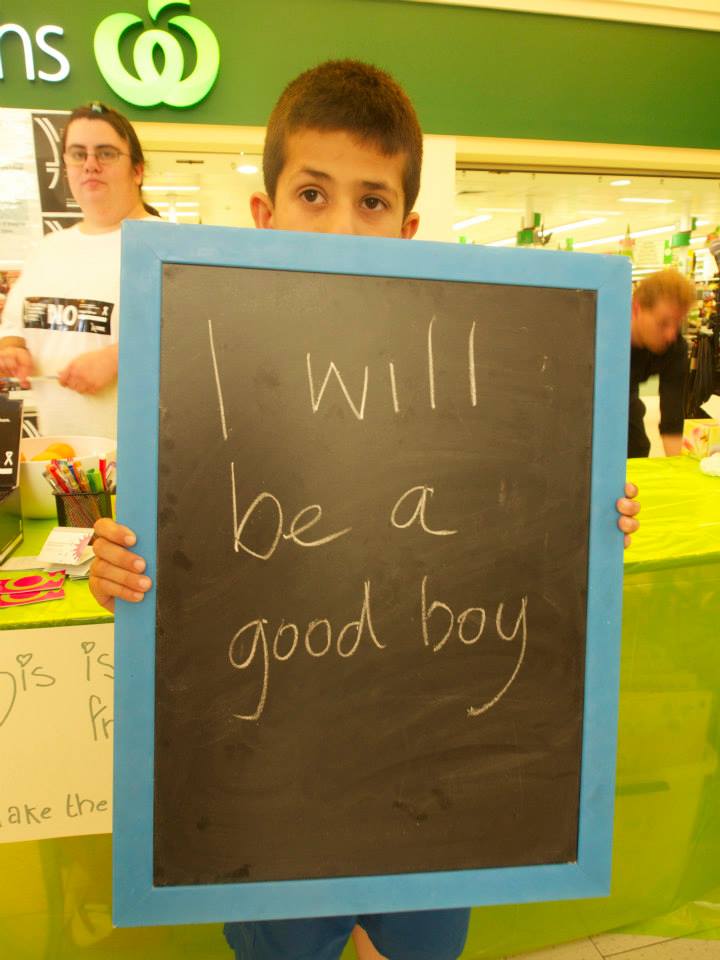 ns
NO
I will
be a
good boy
is is
fr
ake the